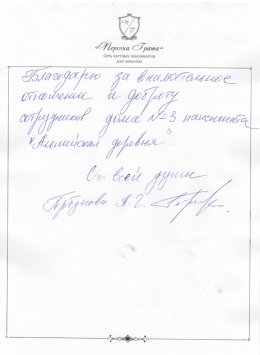 «Персона Грата»
Сеть частных пансионатов
для пожилых
Благодарю за внимательное
отношение и доброту
сотрудников дома №3 пансионата
"Альпийская деревня"
От всей души
А. Г.